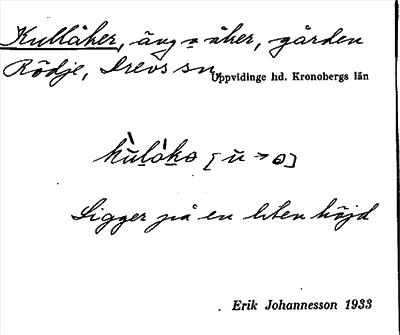 Kullåker, äng o åker, gården
Rödje, Drevs sn, Uppvidinge hd. Kronobergs län
Ligger på en liten höjd
Erik Johannesson 1933